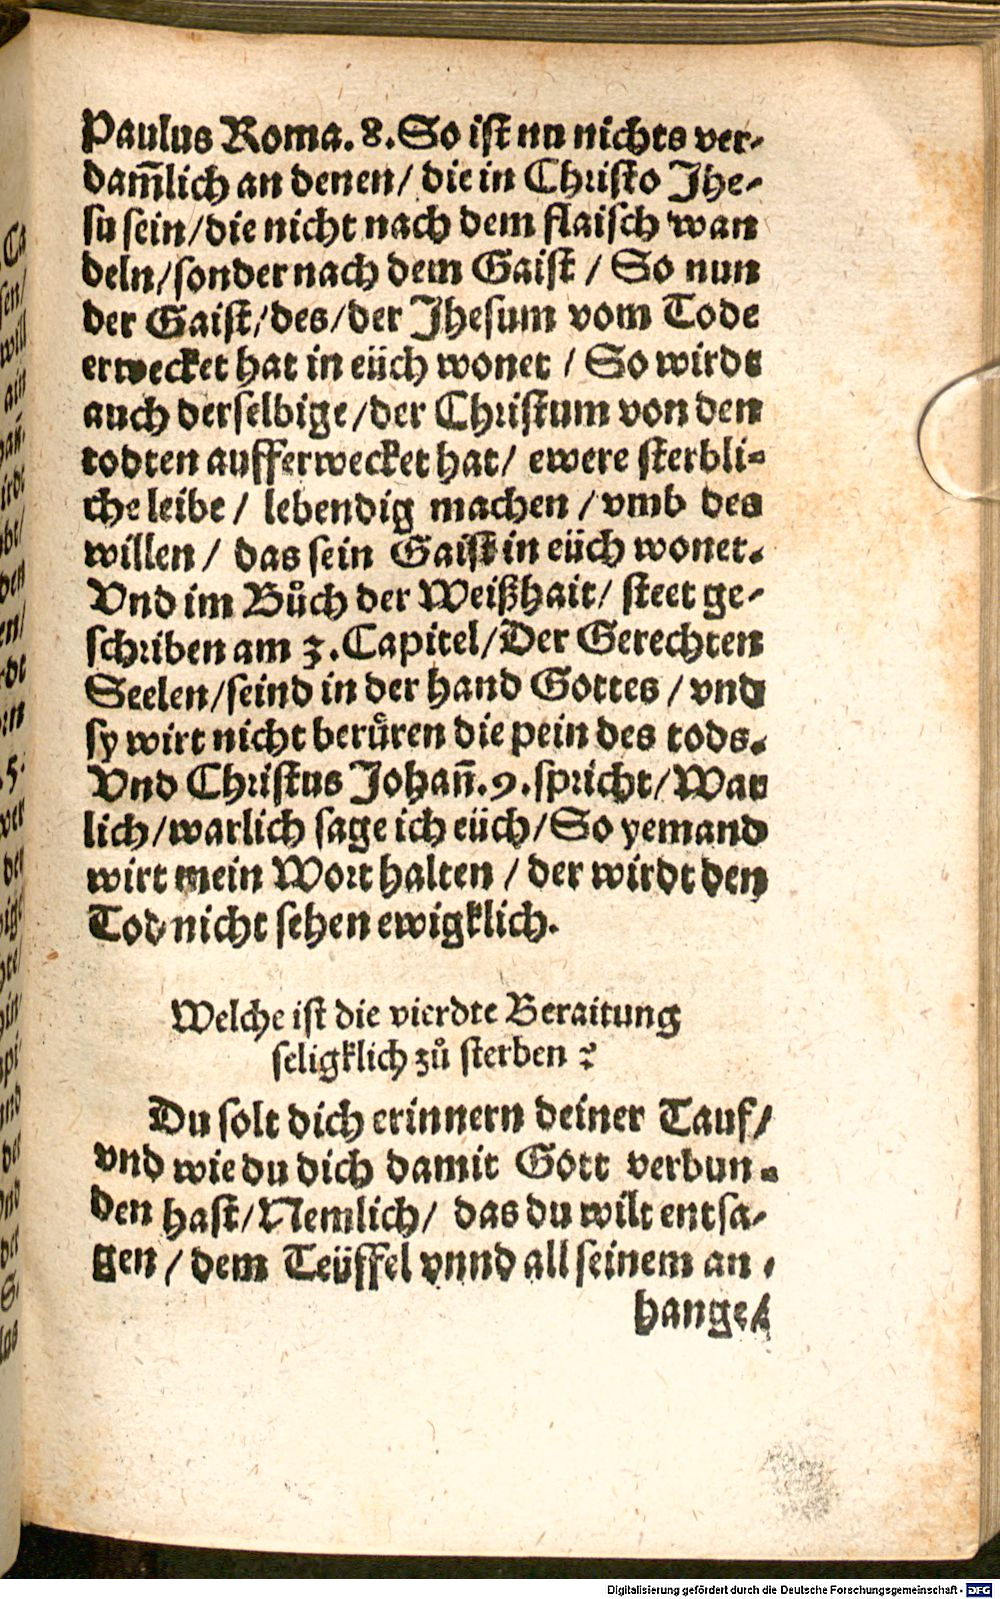 Paulus Roma. 8. So ist nu nichts ver-
dam̄lich an denen/ die in Christo Jhe-
su sein/die nicht nach dem flaisch wan
deln/sonder nach dem Gaist / So nun
der Gaist/des/der Jhesum vom Tode
erwecket hat in eüch wonet / So wirdt
auch derselbige/der Christum von den
todten aufferwecket hat/ ewere sterbli-
che leibe / lebendig machen / vmb des
willen / das sein Gaist in eüch wonet.
Vnd im Bůch der Weißhait/ steet ge-
schriben am 3. Capitel/Der Gerechten
Seelen/seind in der hand Gottes / vnd
sy wirt nicht berůren die pein des tods.
Vnd Christus Johan̄. 9. spricht/War
lich/warlich sage ich eüch/So yemand
wirt mein Wort halten / der wirdt den
Tod nicht sehen ewigklich.
Welche ist die vierdte Beraitung
seligklich zů sterben ?
Du solt dich erinnern deiner Tauf/
vnd wie du dich damit Gott verbun-
den hast/Nemlich/ das du wilt entsa-
gen / dem Teüffel vnnd all seinem an-
hange/
Digitalisierung gefördert durch die Deutsche Forschungsgemeinschaft - DFG